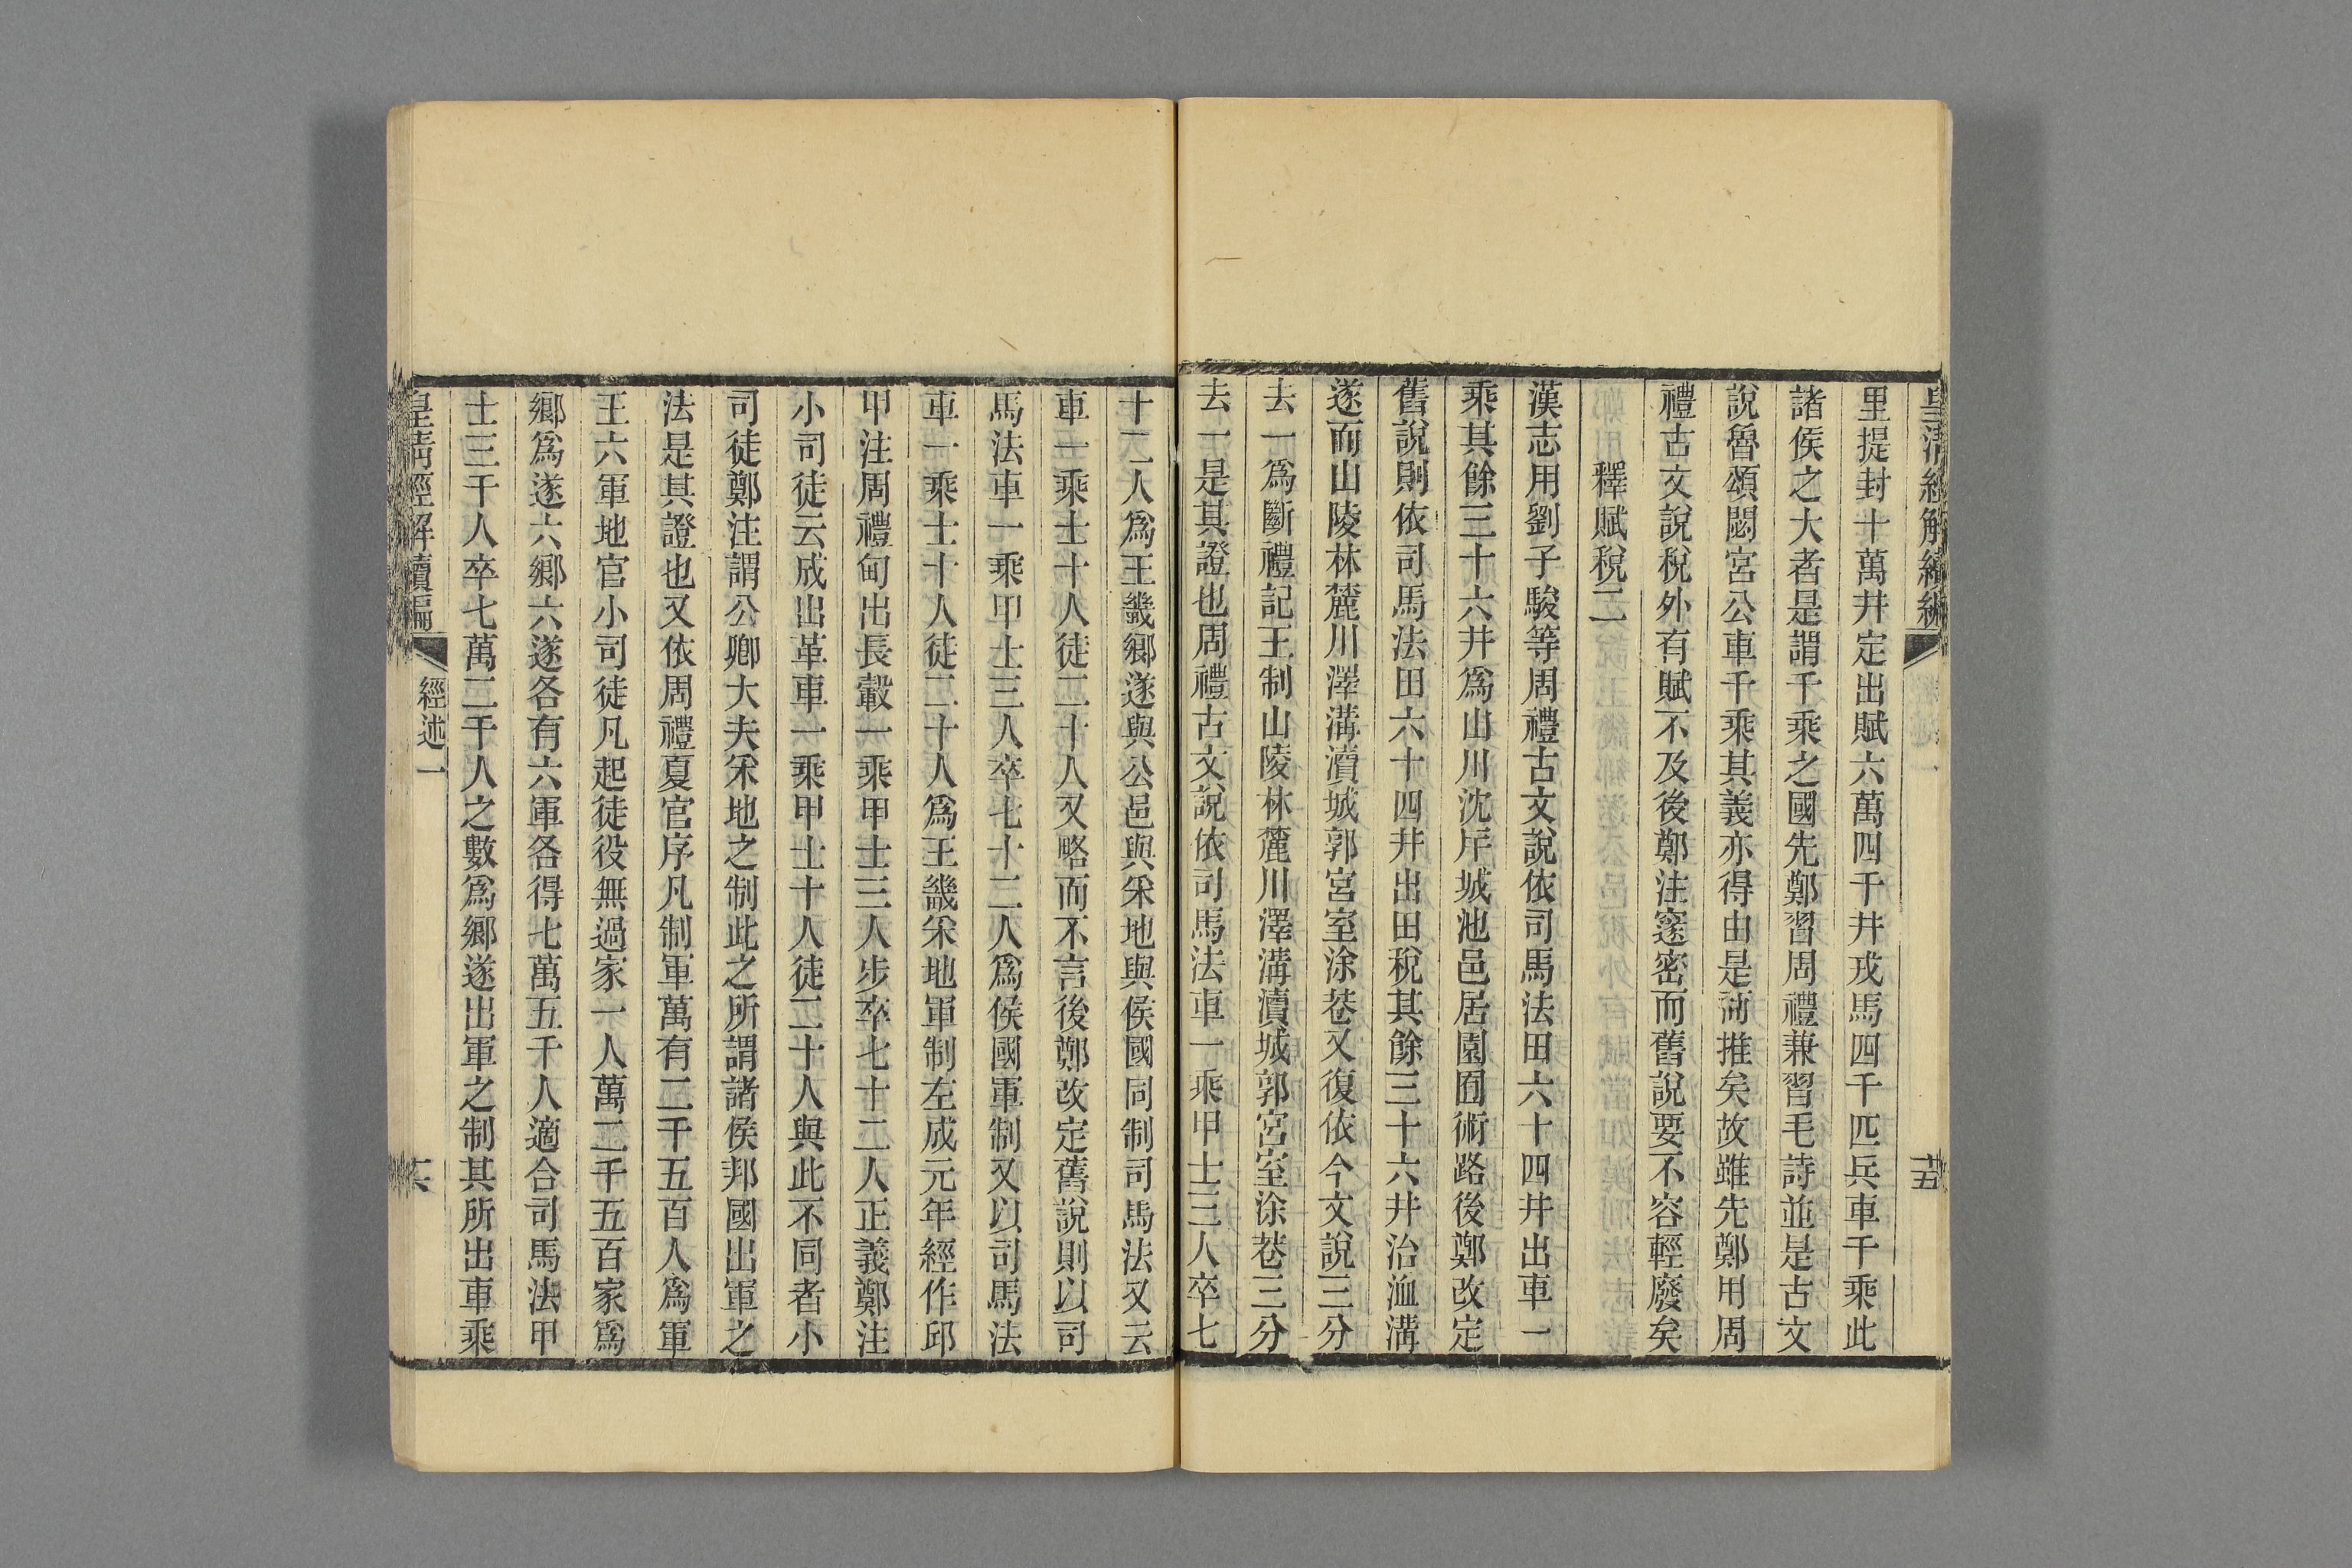 皇清經解續編
十五
里提封十萬井定出賦六萬四千井戎馬四千匹兵車千乘此
諸侯之大者是謂千乘之國先鄭習周禮兼習毛詩並是古文
說魯頌閟宮公車千乘其義亦得由是而推矣故雖先鄭用周
禮古文說稅外有賦不及後鄭注邃密而舊說要不容輕廢矣
釋賦稅二
漢志用劉子駿等周禮古文說依司馬法田六十四井出車一
乘其餘三十六井為山川沈斥城池邑居園囿術路後鄭改定
舊說則依司馬法田六十四井出田稅其餘三十六井治洫溝
遂而山陵林麓川澤溝瀆城郭宮室涂巷又復依今文說三分
去一為斷禮記王制山陵林麓川澤溝瀆城郭宮室涂巷三分
去一是其證也周禮古文說依司馬法車一乘甲士三人卒七
十二人為王畿鄉遂與公邑與釆地與侯國同制司馬法又云
車一乘士十人徒二十人又略而不言後鄭改定舊說則以司
馬法車一乘甲士三人卒七十二人為侯國軍制又以司馬法
車一乘士十人徒二十人為王畿釆地軍制左成元年經作邱
甲注周禮甸出長轂一乘甲士三人步卒七十二人正義鄭注
小司徒云成出革車一乘甲士十人徒二十人與此不同者小
司徒鄭注謂公卿大夫釆地之制此之所謂諸侯邦國出軍之
法是其證也又依周禮夏官序凡制軍萬有二千五百人為軍
王六軍地官小司徒凡起徒役無過家一人萬二千五百家為
鄉為遂六鄉六遂各有六軍各得七萬五千人適合司馬法甲
士三千人卒七萬二千人之數為鄉遂出軍之制其所出車乘
皇清經解續編
經述一
十六